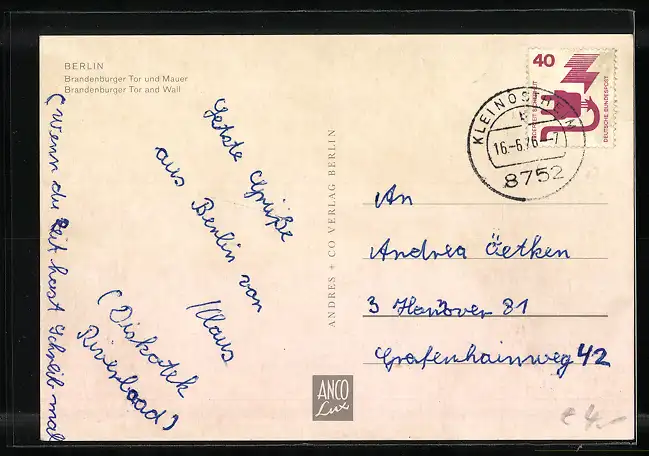 BERLIN
Brandenburger Tor und Mauer
Brandenburger Tor and Wall
(Wenn du Zeit hast Schreib mal
Letzte Grüße
aus Berlin von
Klaus
(Diskotek
Riverboad)
ANDRES + CO VERLAG BERLIN
ANCO
Lux
40
JEDERZEIT SICHERHEIT
DEUTSCHE BUNDESPOST
KLEINOSTHEIM
16.-6.76--7
8752
An
Andrea Oetken
3 Hanover 81
Grafenhainweg 42
€ 4,-